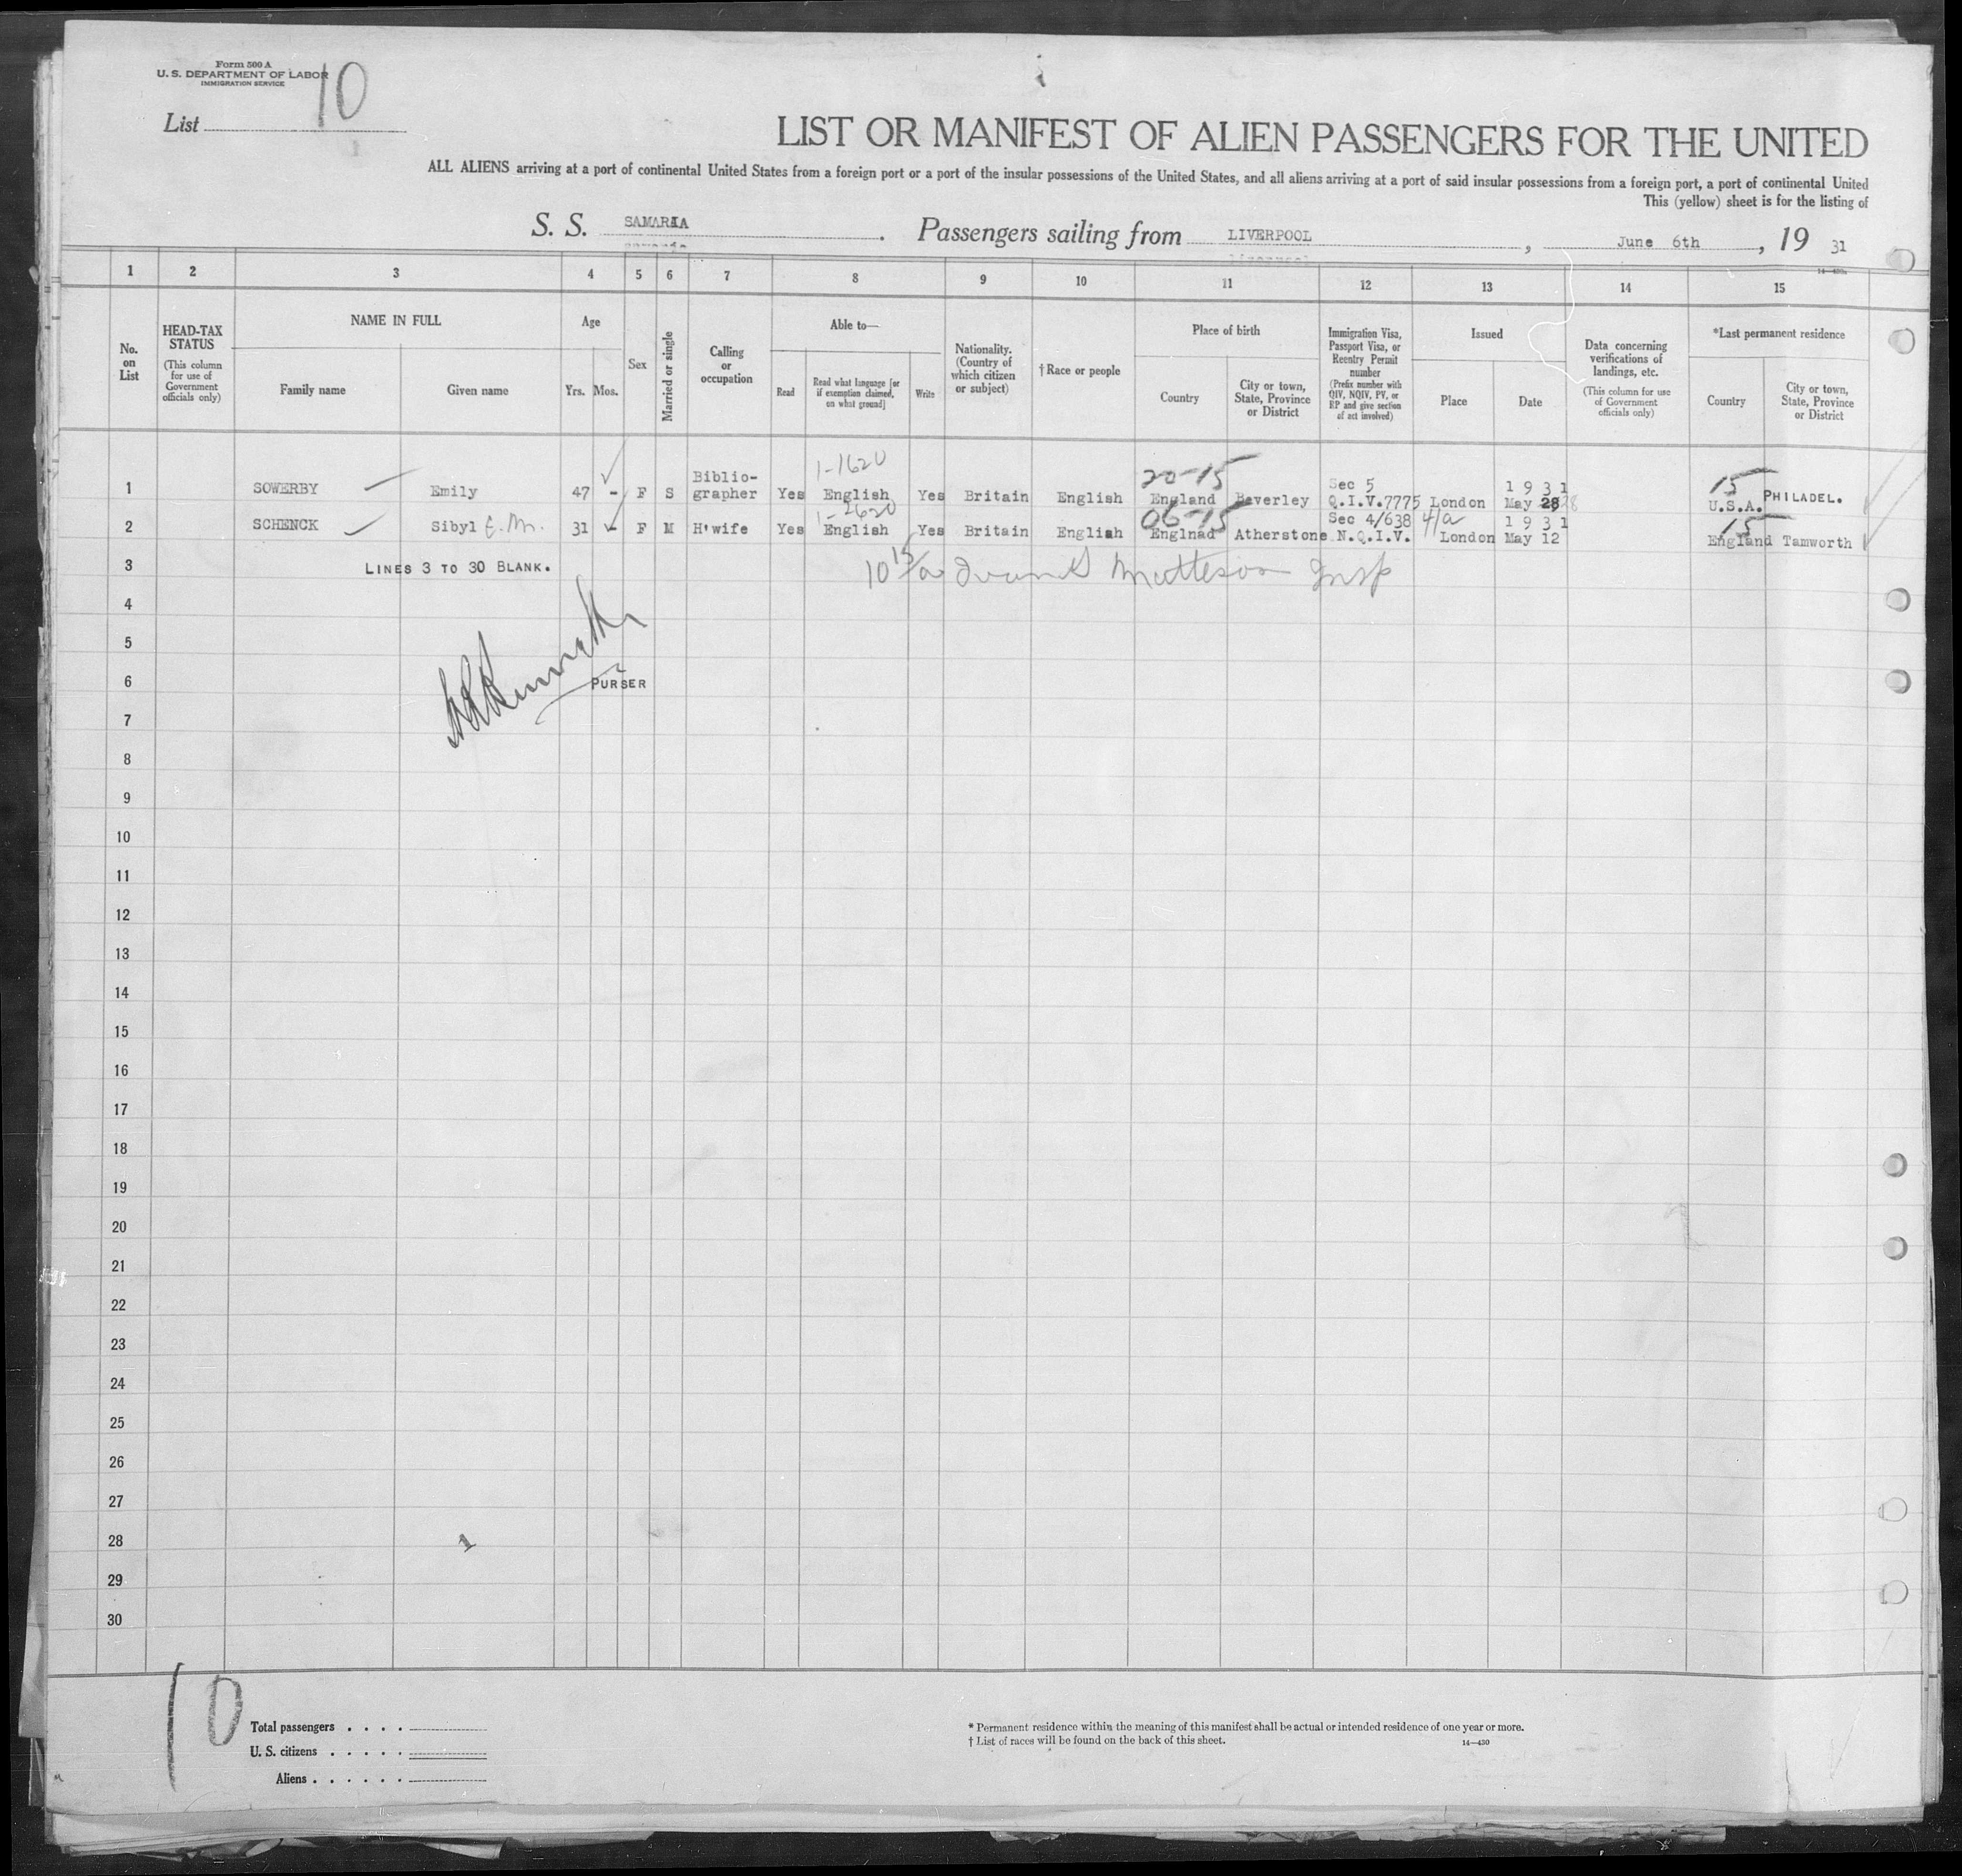 Form 500 A
U. S. DEPARTMENT OF LABOR
IMMIGRATION SERVICE
List 10
LIST OR MANIFEST OF ALIEN PASSENGERS FOR THE UNITED
ALL ALIENS arriving at a port of continental United States from a foreign port or a port of the insular possessions of the United States, and all aliens arriving at a port of said insular possessions from a foreign port, a port of continental United
This (yellow) sheet is for the listing of
S. S. SAMARIA. Passengers sailing from LIVERPOOL, June 6th, 19 31
1 2 3 4 5 6 7 8 9 10 11 12 13 14 15
No. on List
HEAD-TAX STATUS
(This column for use of Government officials only)
NAME IN FULL
Family name
Given name
Age
Yrs. Mos.
Sex
Married or single
Calling or occupation
Able to—
Read
Read what language [or if exemption claimed, on what ground]
Write
Nationality. (Country of which citizen or subject)
†Race or people
Place of birth
Country
City or town, State, Province or District
Immigration Visa, Passport Visa, or Reentry Permit number
(Prefix number with QIV, NQIV, PV, or RP and give section of act involved)
Issued
Place
Date
Data concerning verifications of landings, etc.
(This column for use of Government officials only)
*Last permanent residence
Country
City or town, State, Province or District
1-1620 20-15 15
1 SOWERBY Emily 47 - F S Biblio-grapher Yes English Yes Britain English England Beverley Sec 5 Q.I.V.7775 London 1931 May 28 28 U.S.A. PHILADEL.
1-2620 06-15 15
2 SCHENCK Sibyl E. M. 31 - F M H'wife Yes English Yes Britain English Englnad Atherstone Sec 4/638 N.Q.I.V. 4/a London 1931 May 12 England Tamworth
3 LINES 3 TO 30 BLANK. 10 15/a Matteson Insp
4
5
6 PURSER
7
8
9
10
11
12
13
14
15
16
17
18
19
20
21
22
23
24
25
26
27
28 1
29
30
10
Total passengers . . . .
U. S. citizens . . . . .
Aliens . . . . . .
* Permanent residence within the meaning of this manifest shall be actual or intended residence of one year or more.
† List of races will be found on the back of this sheet.
14—430